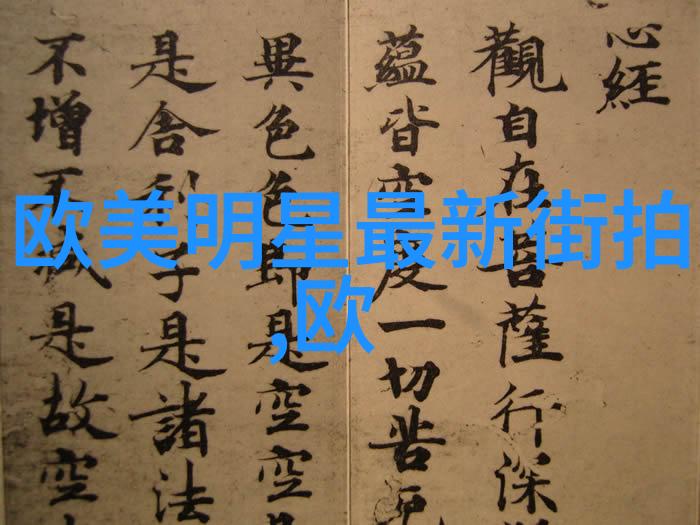 心經
觀自在菩薩行深
蘊皆空度一切苦
異色色即是空空
是舍利子是諸法
不增不減是故空
欧美明星最新街拍
,欧